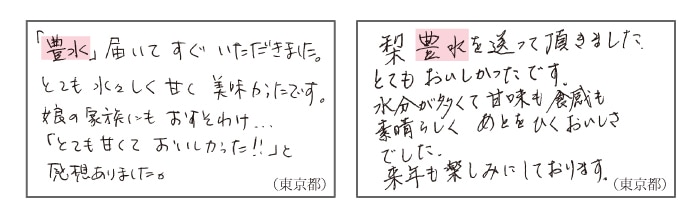 「豊水」届いてすぐいただきました。
とても水々しく甘く美味かったです。
娘の家族にもおすそわけ…
「とても甘くておいしかった!!」と
感想ありました。
（東京都）
梨豊水を送って頂きました
とてもおいしかったです。
水分が多くて甘味も食感も
素晴らしく あとをひくおいしさ
でした。
来年も楽しみにしております。
（東京都）